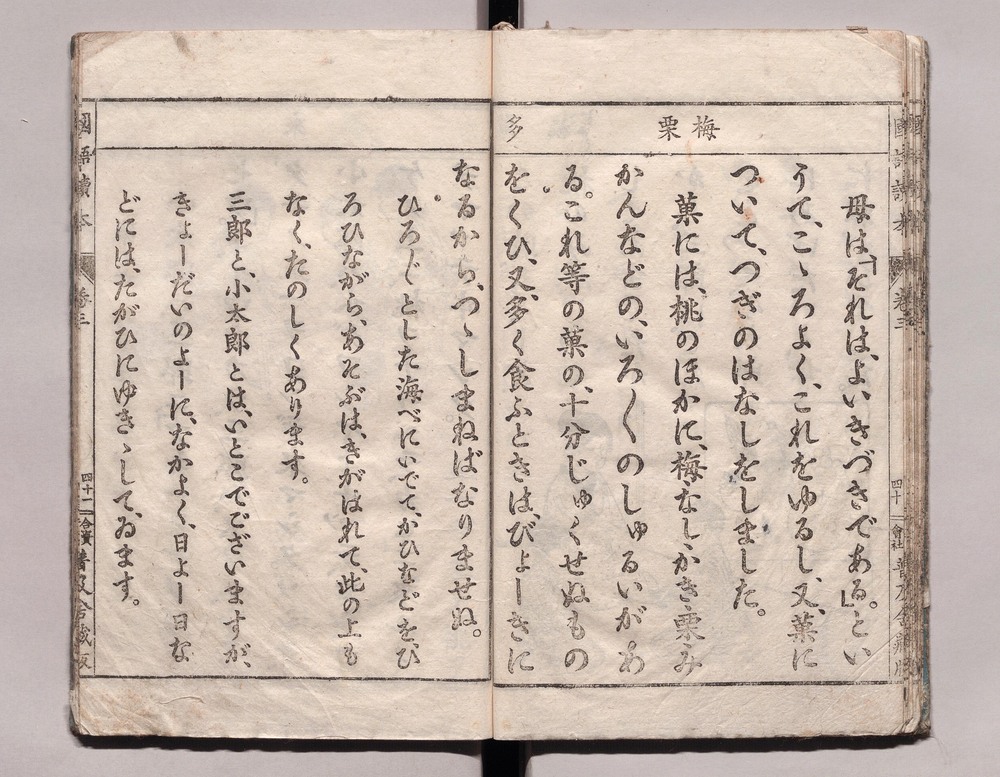 國語讀本
卷三
四十
會社
梅栗
多
母は「それは、よいきづきである。」とい
うて、こゝろよく、これをゆるし、又、菓に
ついて、つぎのはなしをしました。
菓には、桃のほかに、梅なし、かき、栗、み
かんなどの、いろ〱のしゅるいがあ
る。これ等の菓の、十分じゅくせぬもの
をくひ、又、多く食ふときは、びょーきに
なるから、つゝしまねばなりませぬ。
ひろ〲とした海べにいでて、かひなどをひ
ろひながら、あそぶは、きがはれて、此の上も
なく、たのしくあります。
三郎と、小太郎とは、いとこでございますが、
きょーだいのよーに、なかよく、日よー日な
どには、たがひにゆきゝして、ゐます。
國語讀本
卷三
四十一